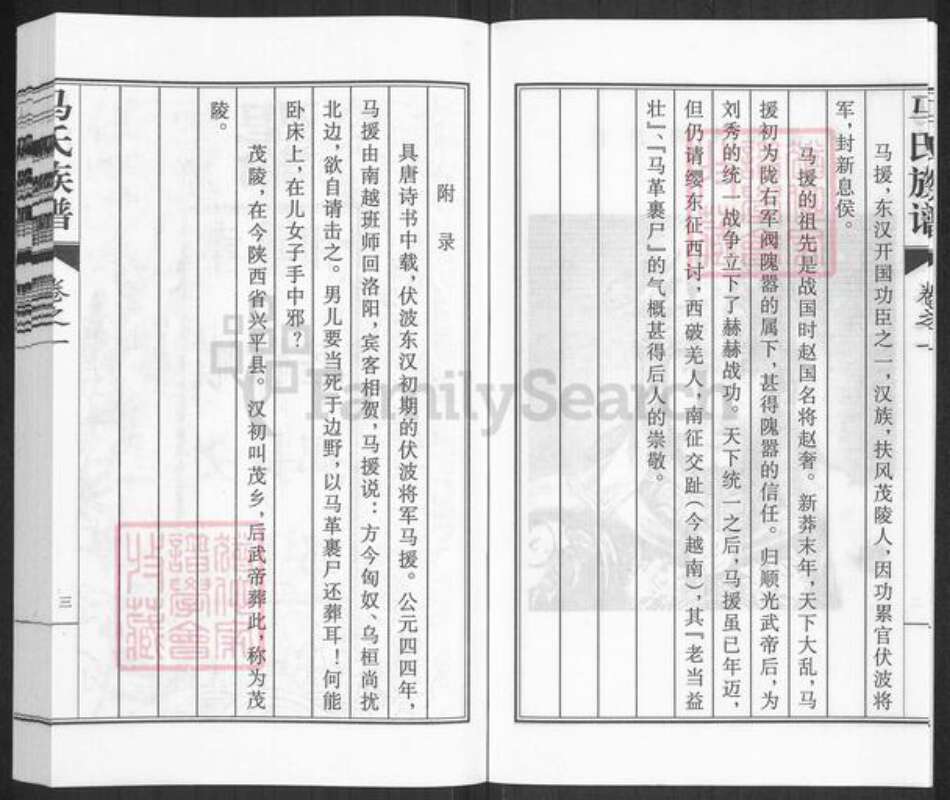 马氏族谱 卷之一
马援，东汉开国功臣之一，汉族，扶风茂陵人，因功累官伏波将
军，封新息侯。
马援的祖先是战国时赵国名将赵奢。新莽末年，天下大乱，马
援初为陇右军阀隗嚣的属下，甚得隗嚣的信任。归顺光武帝后，为
刘秀的统一战争立下了赫赫战功。天下统一之后，马援虽已年迈，
但仍请缨东征西讨，西破羌人，南征交趾（今越南），其『老当益
壮』、『马革裹尸』的气概甚得后人的崇敬。
附录
具唐诗书中载，伏波东汉初期的伏波将军马援。公元四四年，
马援由南越班师回洛阳，宾客相贺，马援说：方今匈奴、乌桓尚扰
北边，欲自请击之。男儿要当死于边野，以马革裹尸还葬耳！何能
卧床上，在儿女子手中邪？
茂陵，在今陕西省兴平县。汉初叫茂乡，后武帝葬此，称为茂
陵。
马氏族谱 卷之一
三
FamilySearch